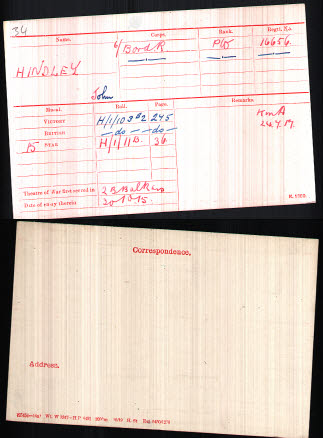 34
Name. Corps. Rank. Regtl. No.
HINDLEY 6/Bord R Pte 16656
John
Medal. Roll. Page. Remarks.
VICTORY H/1/10 B2 245 K in A
BRITISH —do— —do— 24.4.17.
15 STAR H/1/11B. 36
Theatre of War first served in 2B Balkans
Date of entry therein 20.10.15.
Correspondence.
Address.